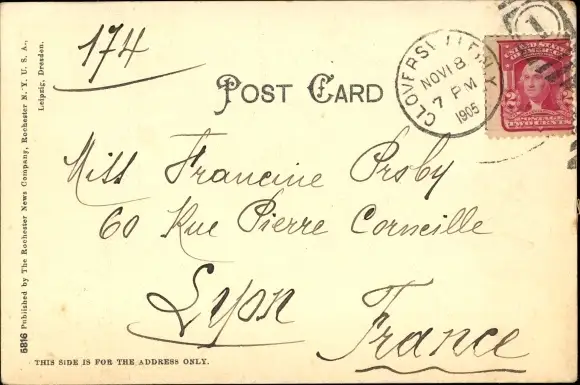 174
POST CARD
GLOVERSVILLE N.Y.
NOV 18
7 PM
1905
1
UNITED STATES OF AMERICA
2 2
POSTAGE
TWO CENTS
Miss Francine Orsby
60 Rue Pierre Corneille
Lyon
France
THIS SIDE IS FOR THE ADDRESS ONLY.
5816 Published by The Rochester News Company, Rochester N.Y. U.S.A.,
Leipzig, Dresden.